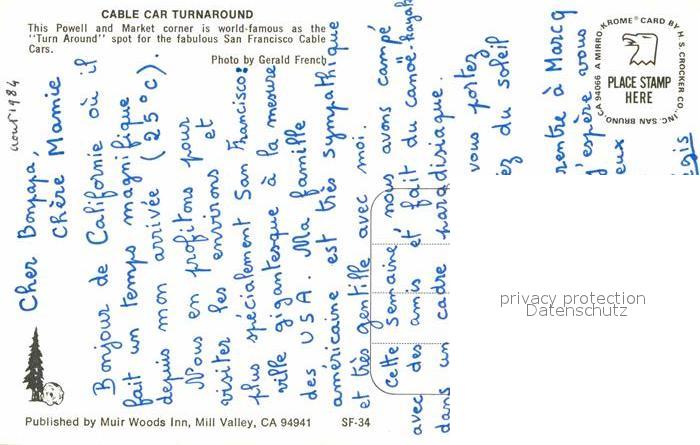 CABLE CAR TURNAROUND
This Powell and Market corner is world-famous as the
"Turn Around" spot for the fabulous San Francisco Cable
Cars.
Photo by Gerald French
août 1984
Cher Bonpapa,
Chère Mamie
Bonjour de Californie où il
fait un temps magnifique
depuis mon arrivée (25°c).
Nous en profitons pour
visiter les environs et
plus spécialement San Francisco:
ville gigantesque à la mesure
des USA. Ma famille
américaine est très sympathique
et très gentille avec moi.
Cette semaine nous avons campé
avec des amis et fait du canoë-kayak
dans un cadre paradisiaque.
vous portez
ez du soleil
rentre à Marcq
j'espère vous
eux
egis
A MIRRO-KROME® CARD BY H. S. CROCKER CO., INC. SAN BRUNO, CA 94066
PLACE STAMP
HERE
privacy protection
Datenschutz
Published by Muir Woods Inn, Mill Valley, CA 94941
SF-34